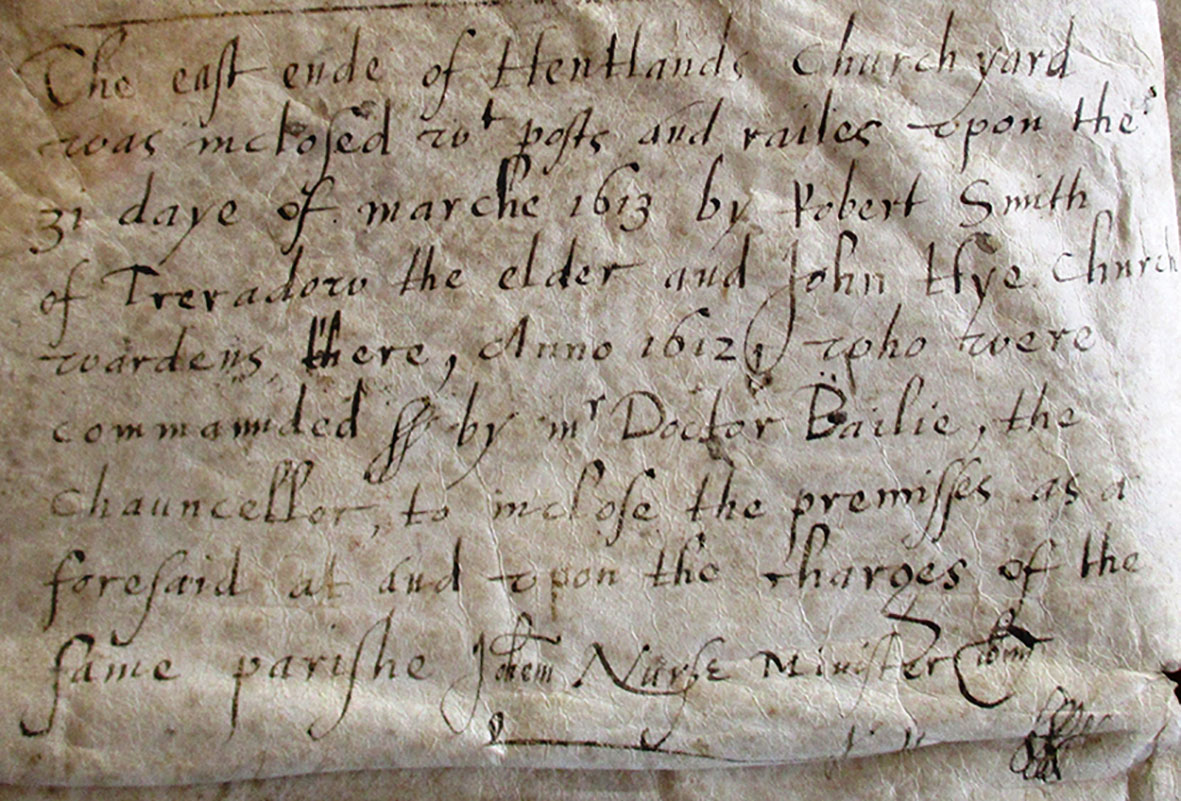 The east ende of Hentlands Churchyard
was inclosed wt posts and railes vpon the
31 daye of marche 1613 by Robert Smith
of Treradow the elder and John Hye Church
wardens there, Anno 1612, who were
commaunded by mr Doctor Bailie, the
Chauncellor, to inclose the premisses as a
foresaid at and vpon the charges of the
same parishe Nurse Minister